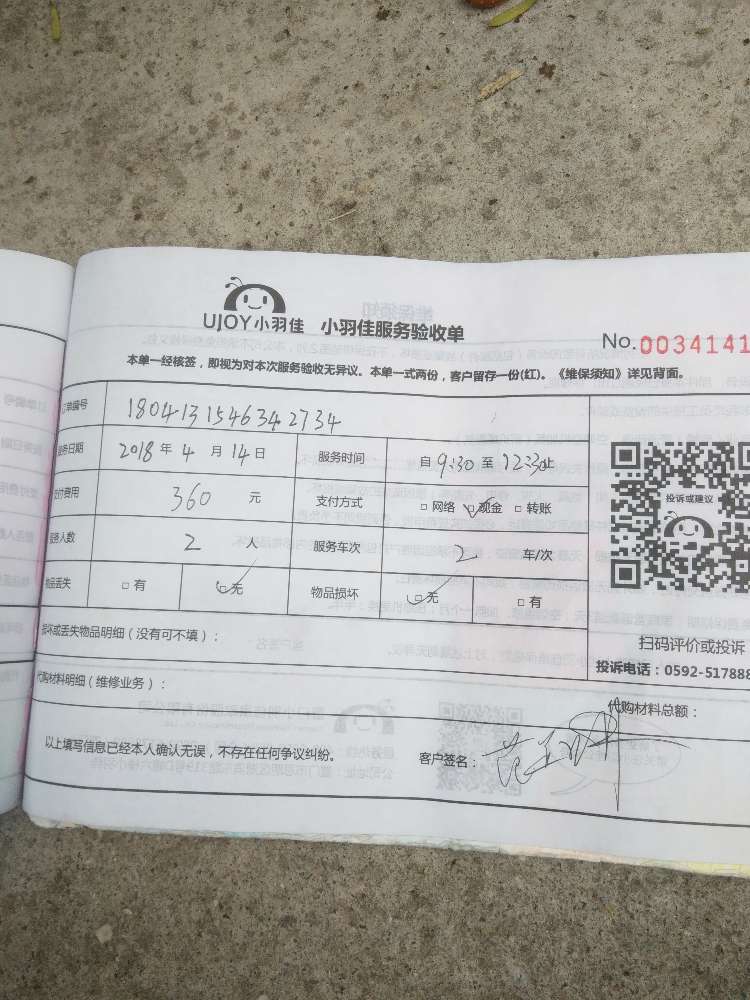 UJOY小羽佳 小羽佳服务验收单
No.0034141
本单一经核签，即视为对本次服务验收无异议。本单一式两份，客户留存一份(红)。《维保须知》详见背面。
订单编号 1804131546342734
服务日期 2018年4月14日 服务时间 自9:30至12:30止
支付费用 360元 支付方式 □网络 □现金 □转账
服务人数 2人 服务车次 2车/次
物品丢失 □有 □无 物品损坏 □无 □有
损坏或丢失物品明细（没有可不填）：
代购材料明细（维修业务）：
代购材料总额：
以上填写信息已经本人确认无误，不存在任何争议纠纷。 客户签名：
投诉或建议
扫码评价或投诉
投诉电话：0592-517888